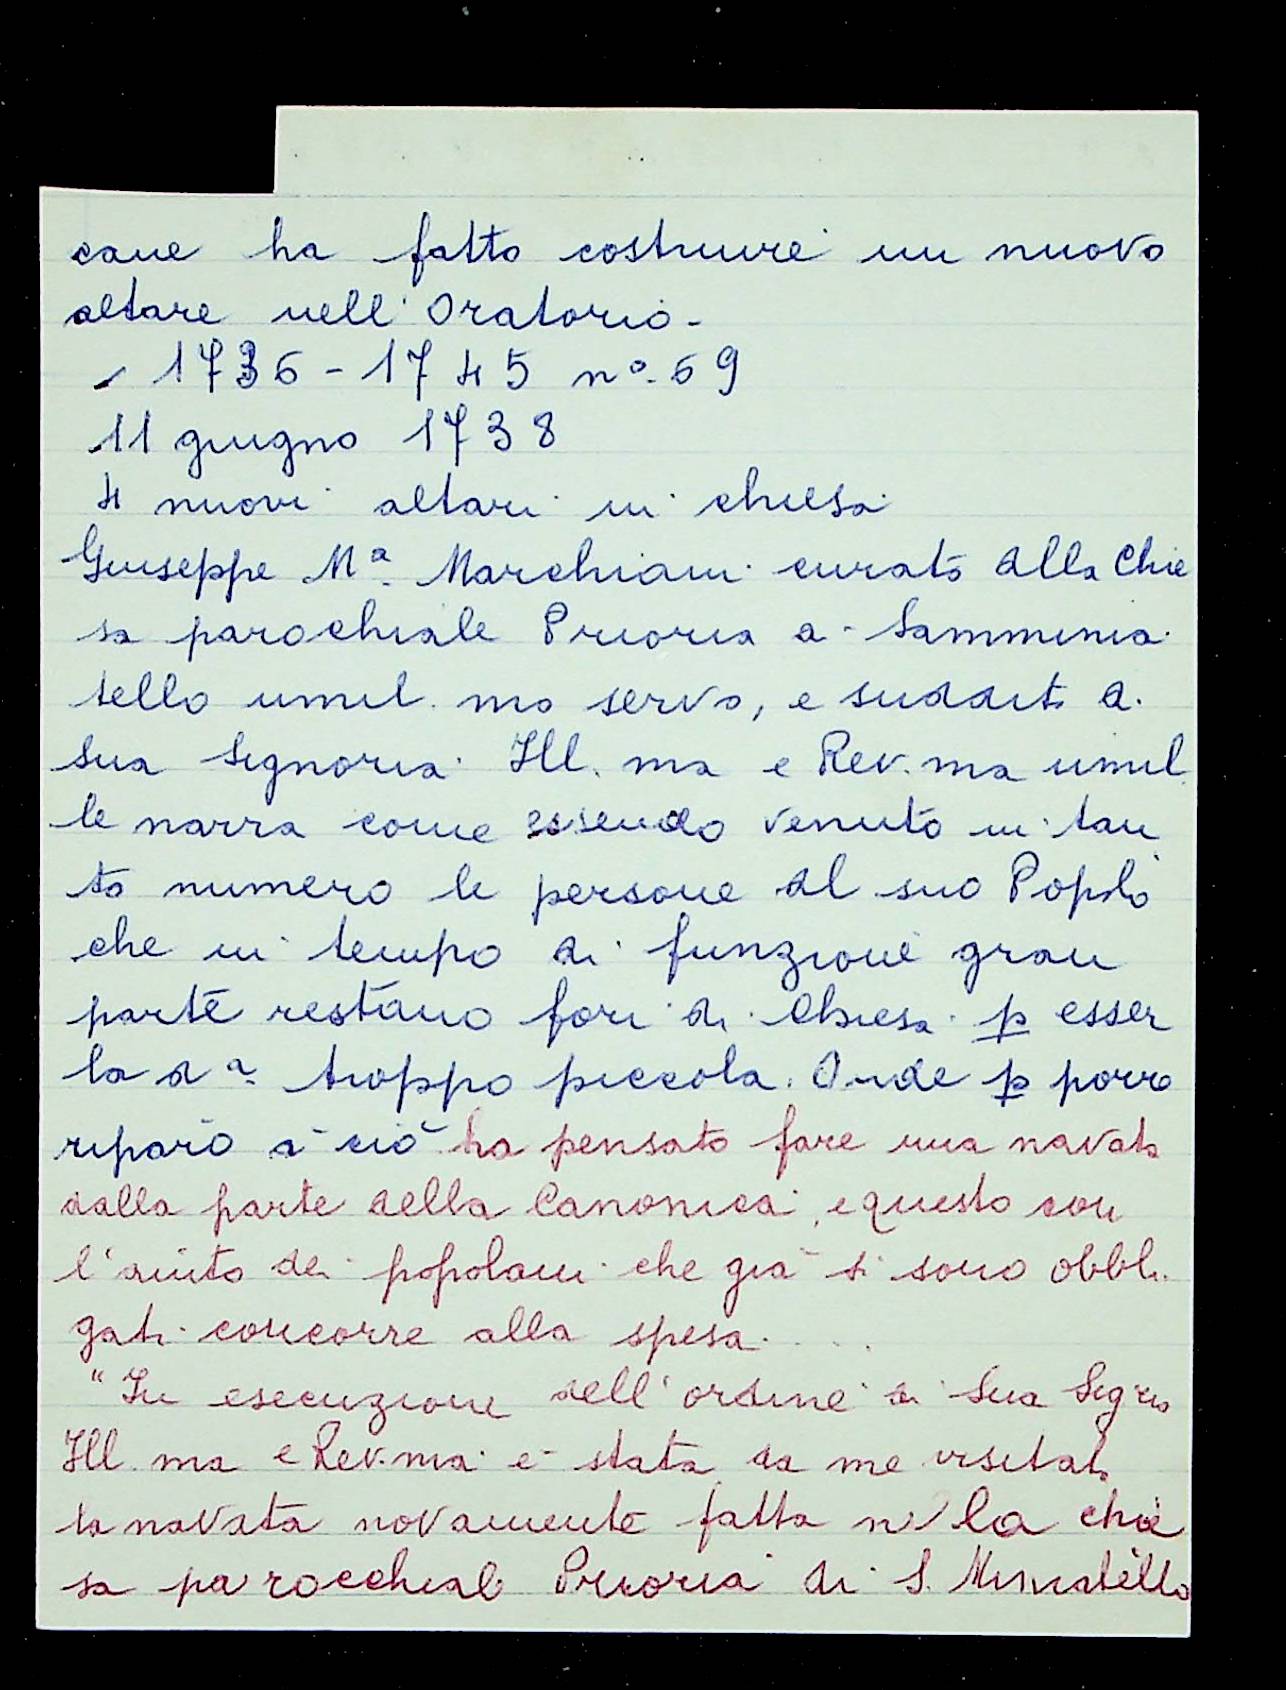 cane ha fatto costruire un nuovo
altare nell'Oratorio -
- 1736 - 1745 nº. 69
11 giugno 1738
4 nuovi altari in chiesa
Giuseppe Mª. Marchiani curato alla Chie
sa parochiale Prioria a Samminia
tello umil.mo servo, e suddito di
Sua Signoria Ill.ma e Rev.ma umil
le narra come essendo venuto in tan
to numero le persone al suo Popolo
che in tempo di funzione gran
parte restano fori di Chiesa p esser
la dª. troppo piccola. Onde p porre
riparo a ciò ha pensato fare una navata
dalla parte della Canonica, e questo con
l'aiuto dei popolani che già si sono obbli
gati concorre alla spesa. ...
"In esecuzione dell'ordine di Sua Sig.ria
Ill.ma e Rev.ma è stata da me visitata
la navata novamente fatta nella chie
sa parocchiale Prioria di S. Miniatello